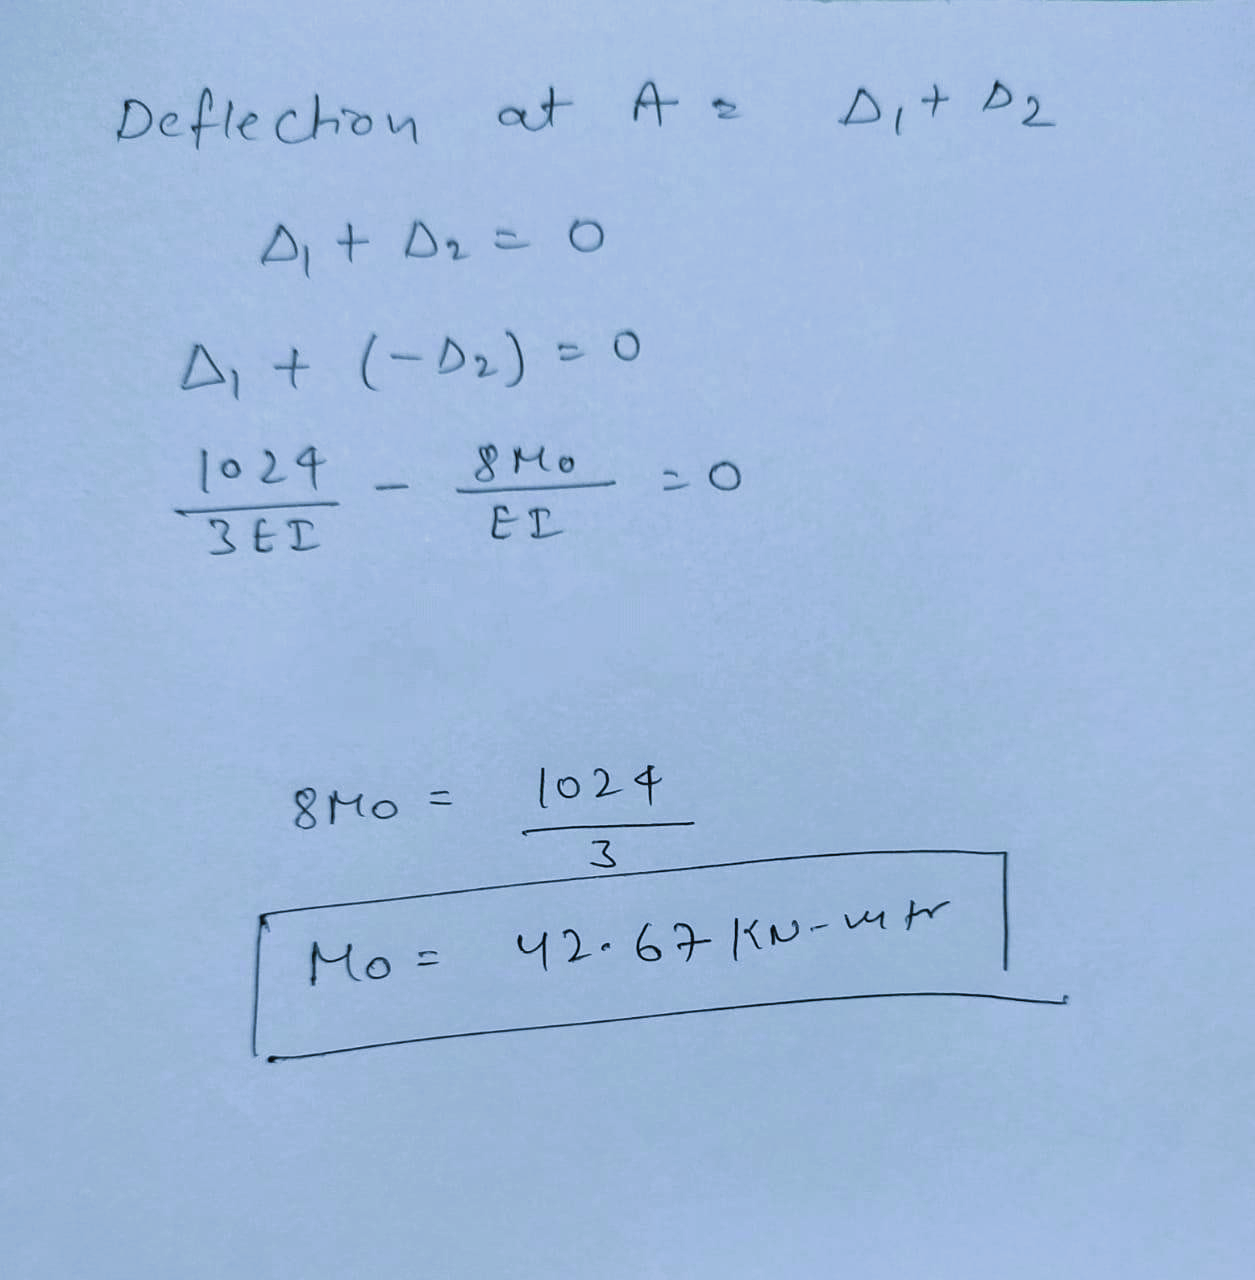 Deflection at A = Δ₁ + Δ₂
Δ₁ + Δ₂ = 0
Δ₁ + (-Δ₂) = 0
1024/3EI - 8Mo/EI = 0
8Mo = 1024/3
Mo = 42.67 KN-mtr